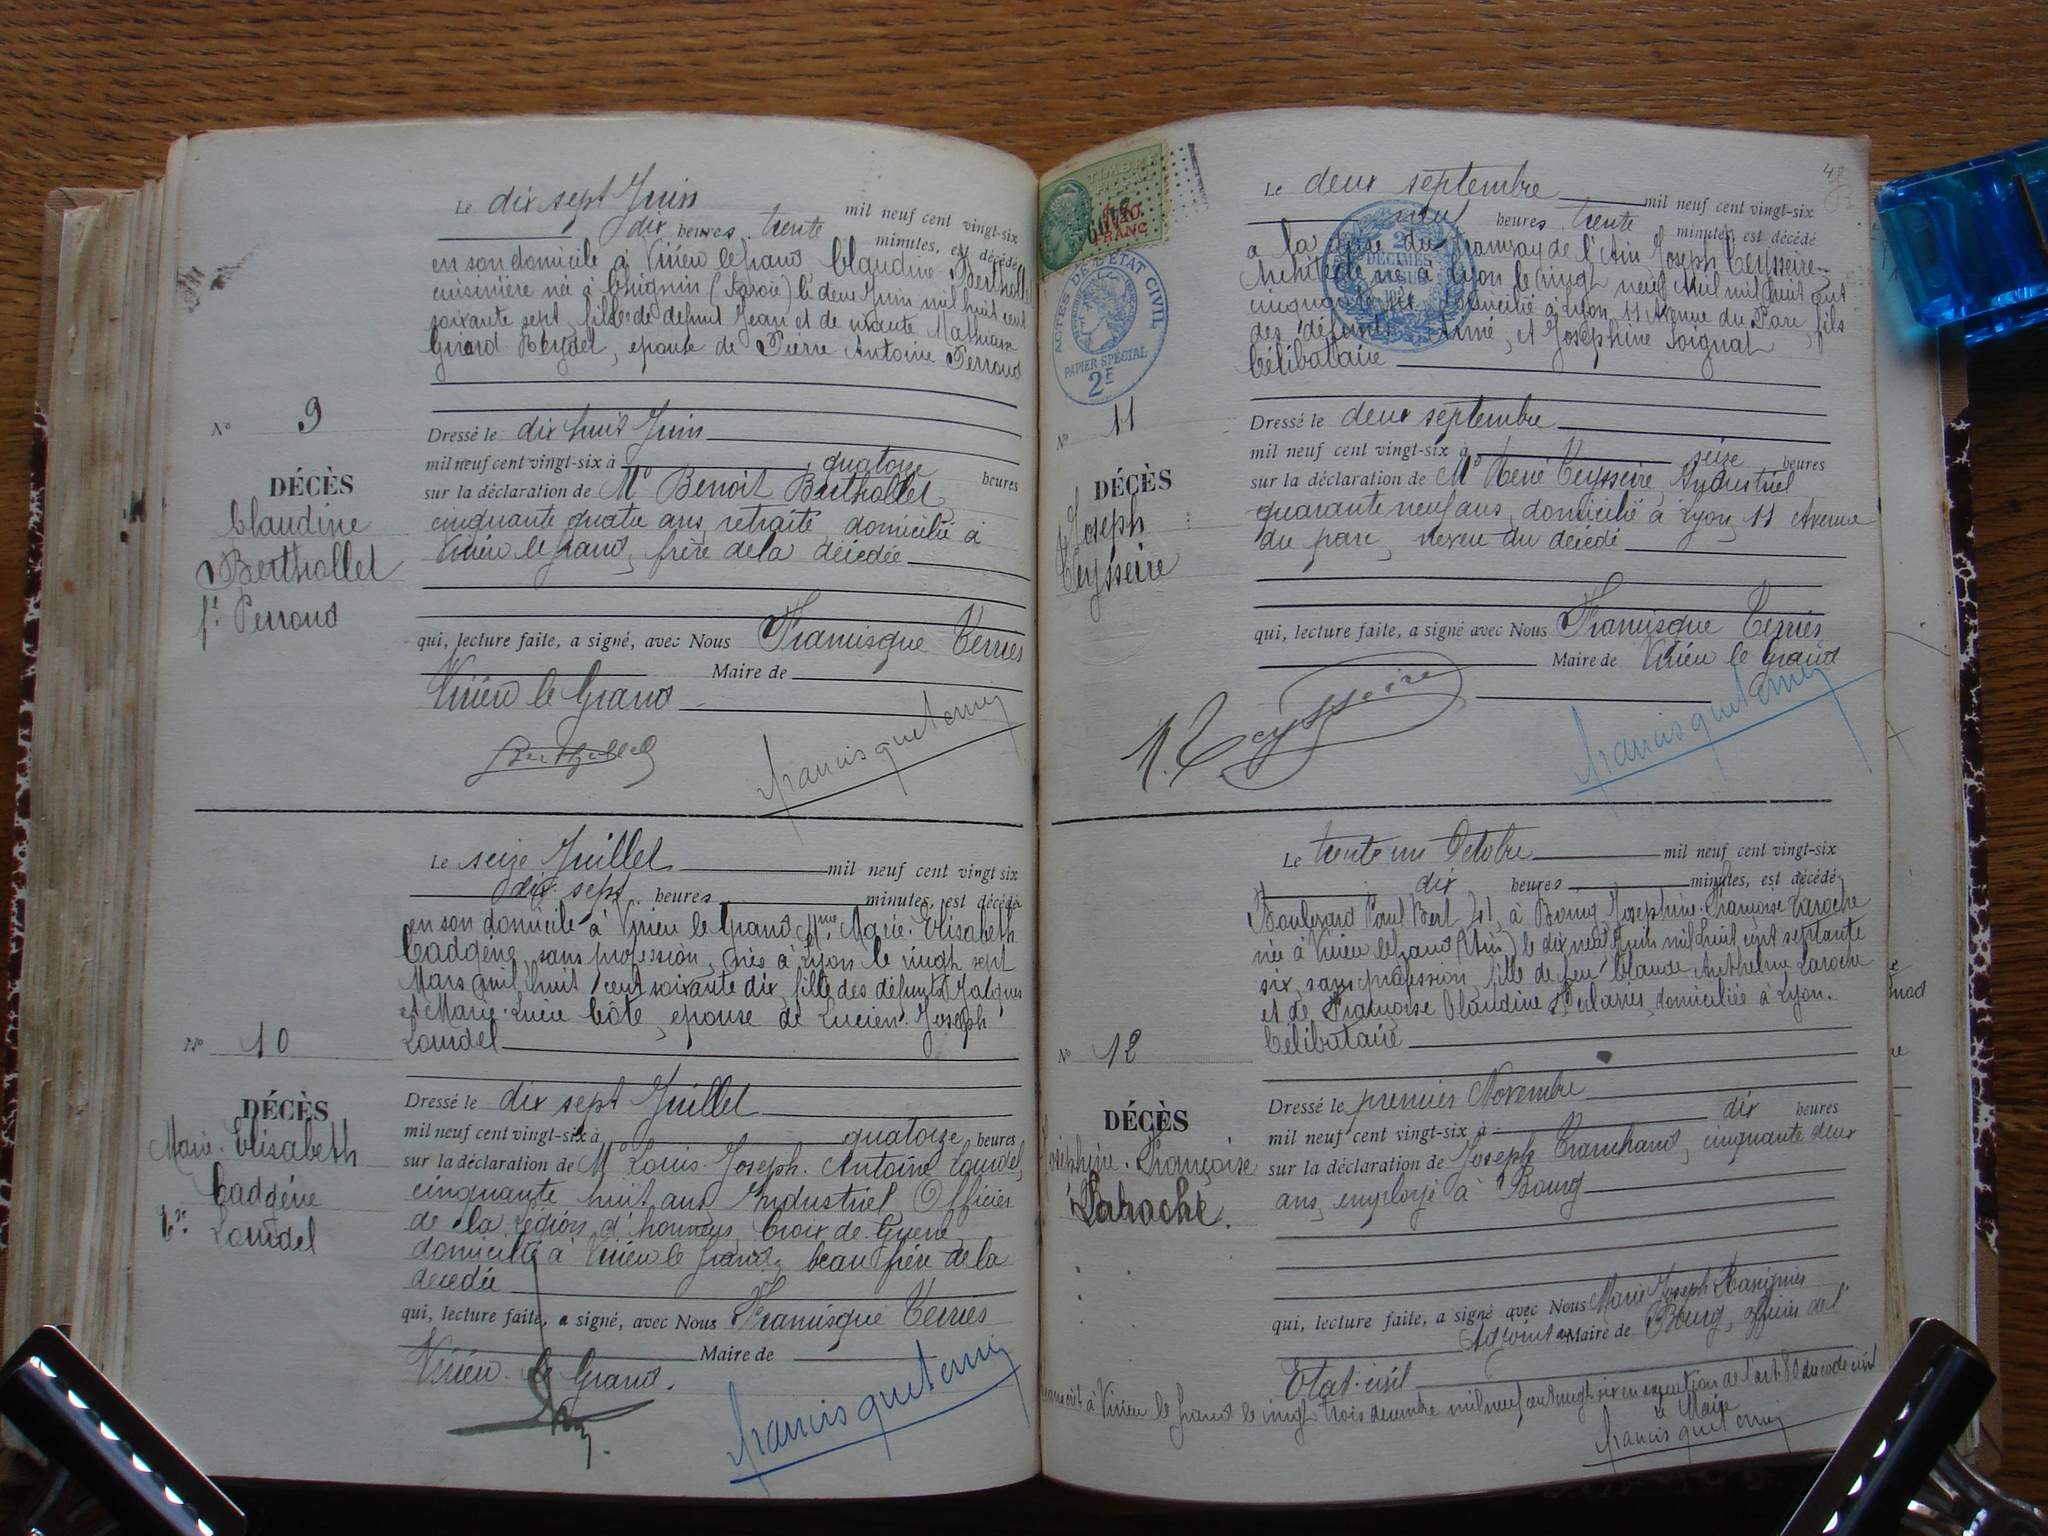 Le dix sept Juin mil neuf cent vingt-six
dix heures trente minutes, est décédé
en son domicile à Virieu le Grand, Claudine Berthollet
cuisinière née à Chignin (Savoie) le deux Juin mil huit cent
soixante sept, fille de défunt Jean et de vivante
Girard épouse de Pierre Antoine Perroud
N° 9
DÉCÈS
Claudine
Berthollet
fe Perroud
Dressé le dix huit Juin
mil neuf cent vingt-six à quatorze heures
sur la déclaration de Mr Benoit Berthollet
cinquante quatre ans, retraité, domicilié à
Virieu le Grand, frère de la décédée
qui, lecture faite, a signé, avec Nous Francisque Terrier
Maire de
Virieu le Grand
Berthollet
francisque terrier
Le seize Juillet mil neuf cent vingt six
dix-sept heures minutes, est décédé
en son domicile à Virieu le Grand Mme Marie-Elisabeth
Cadgène, sans profession, née à Lyon le vingt sept
Mars mil huit cent soixante dix, fille des défunts Jacques
et Marie-Lucie Côte, épouse de Lucien-Joseph
Lourdel
N° 10
DÉCÈS
Marie-Elisabeth
Cadgène
Lourdel
Dressé le dix sept Juillet
mil neuf cent vingt-six à quatorze heures
sur la déclaration de Mr Louis-Joseph-Antoine Lourdel,
cinquante huit ans, Industriel, Officier
de la Légion d'honneur, Croix de Guerre,
domicilié à Virieu le Grand, beau frère de la
décédée
qui, lecture faite, a signé, avec Nous Francisque Terrier
Maire de
Virieu-le Grand.
francisque terrier
TIMBRE
FRANC
ACTES DE L'ETAT CIVIL
PAPIER SPÉCIAL
2F
49
Le deux septembre mil neuf cent vingt-six
neuf heures trente minutes, est décédé
à la du tramway de l'Ain Joseph Teysseire
Architecte né à Lyon le vingt neuf mil huit cent
cinquante domicilié à Lyon, 11 Avenue du Parc, fils
des défunts Aimé, et Joséphine Soignat
Célibataire
2
DÉCIMES
EN SUS
N° 11
DÉCÈS
Joseph
Teysseire
Dressé le deux septembre
mil neuf cent vingt-six à seize heures
sur la déclaration de Mr René Teysseire, Industriel
quarante neuf ans, domicilié à Lyon, 11 Avenue
du parc, neveu du décédé
qui, lecture faite, a signé, avec Nous Francisque Terrier
Maire de Virieu le Grand
Teysseire
francisque terrier
Le trente un Octobre mil neuf cent vingt-six
dix heures minutes, est décédé
Boulevard Paul Bert 41, à Bourg Joséphine-Françoise Laroche
née à Virieu le Grand (Ain) le dix neuf Juin mil huit cent septante
six, sans profession, fille de feu Claude Anthelme Laroche
et de Françoise Claudine domiciliée à Lyon.
Célibataire
N° 12
DÉCÈS
Joséphine-Françoise
Laroche.
Dressé le premier Novembre
mil neuf cent vingt-six à dix heures
sur la déclaration de Joseph Tranchand, cinquante deux
ans, employé à Bourg
qui, lecture faite, a signé avec Nous Marie Joseph
Adjoint au Maire de Bourg, officier de l'
Etat-civil
Transcrit à Virieu le Grand le vingt trois décembre mil neuf cent vingt-six en exécution de l'art. 80 du code civil
Le Maire
francisque terrier